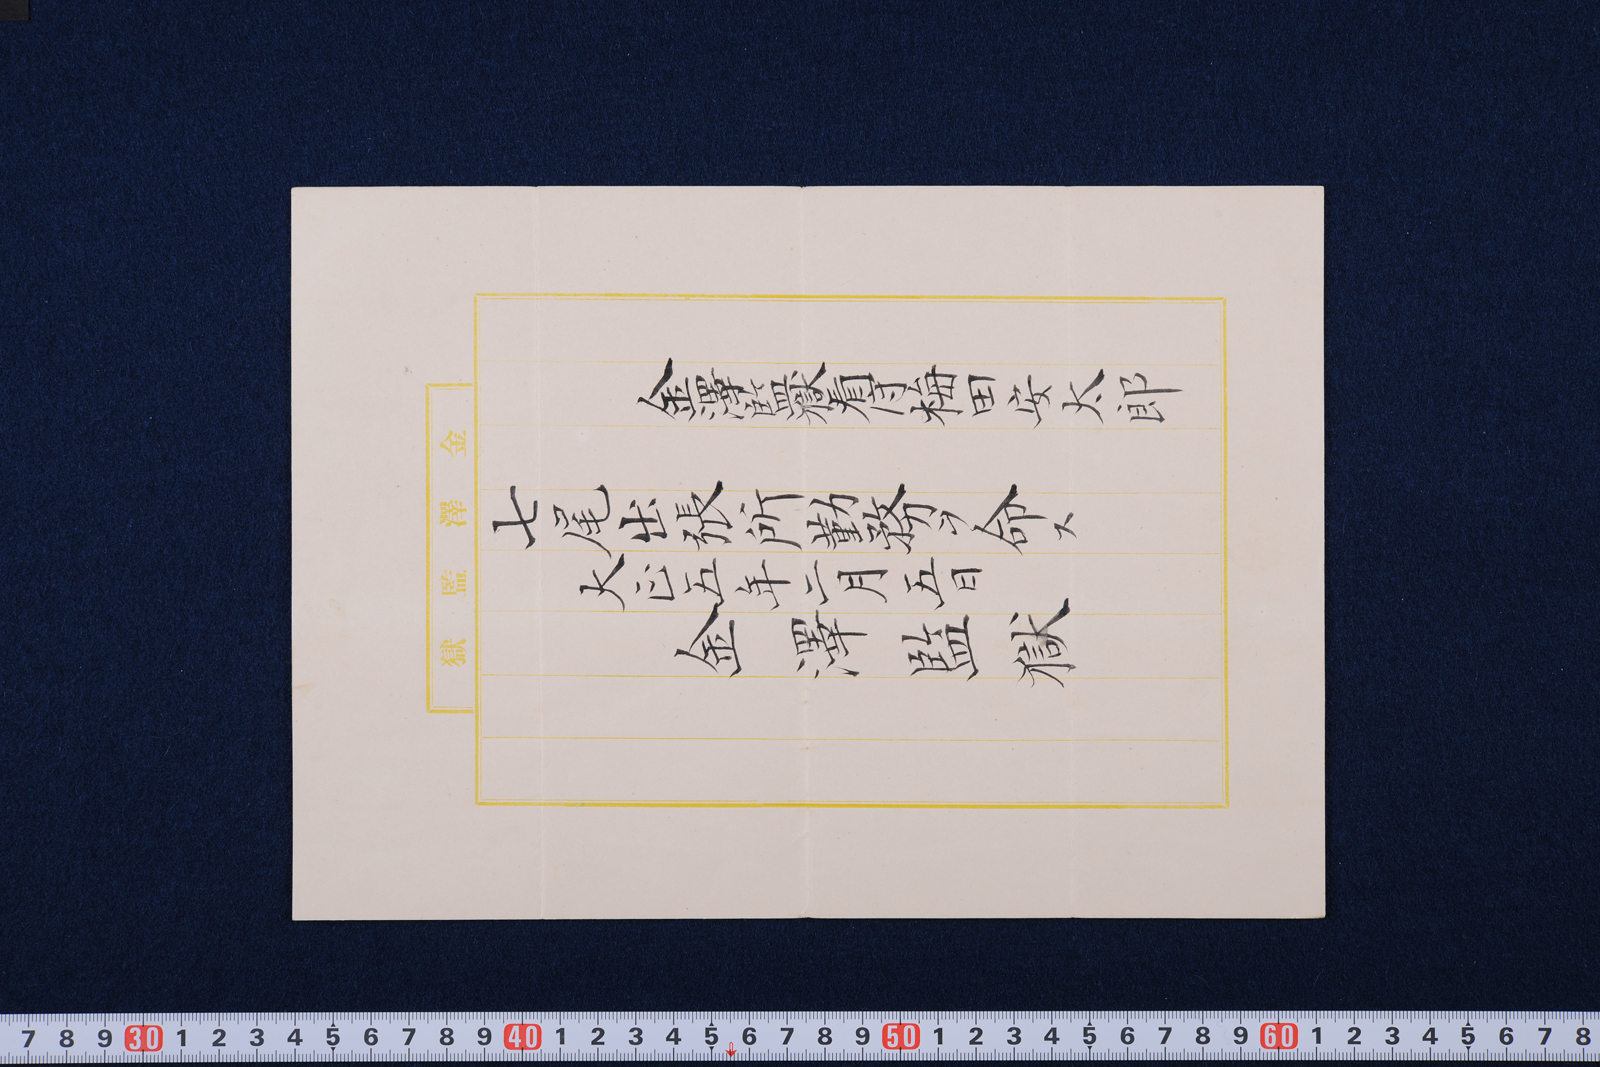 金澤監獄看守梅田安太郎
七尾出張所勤務ヲ命ス
大正五年二月五日
金澤監獄
金澤監獄
7 8 9 30 1 2 3 4 5 6 7 8 9 40 1 2 3 4 5 6 7 8 9 50 1 2 3 4 5 6 7 8 9 60 1 2 3 4 5 6 7 8